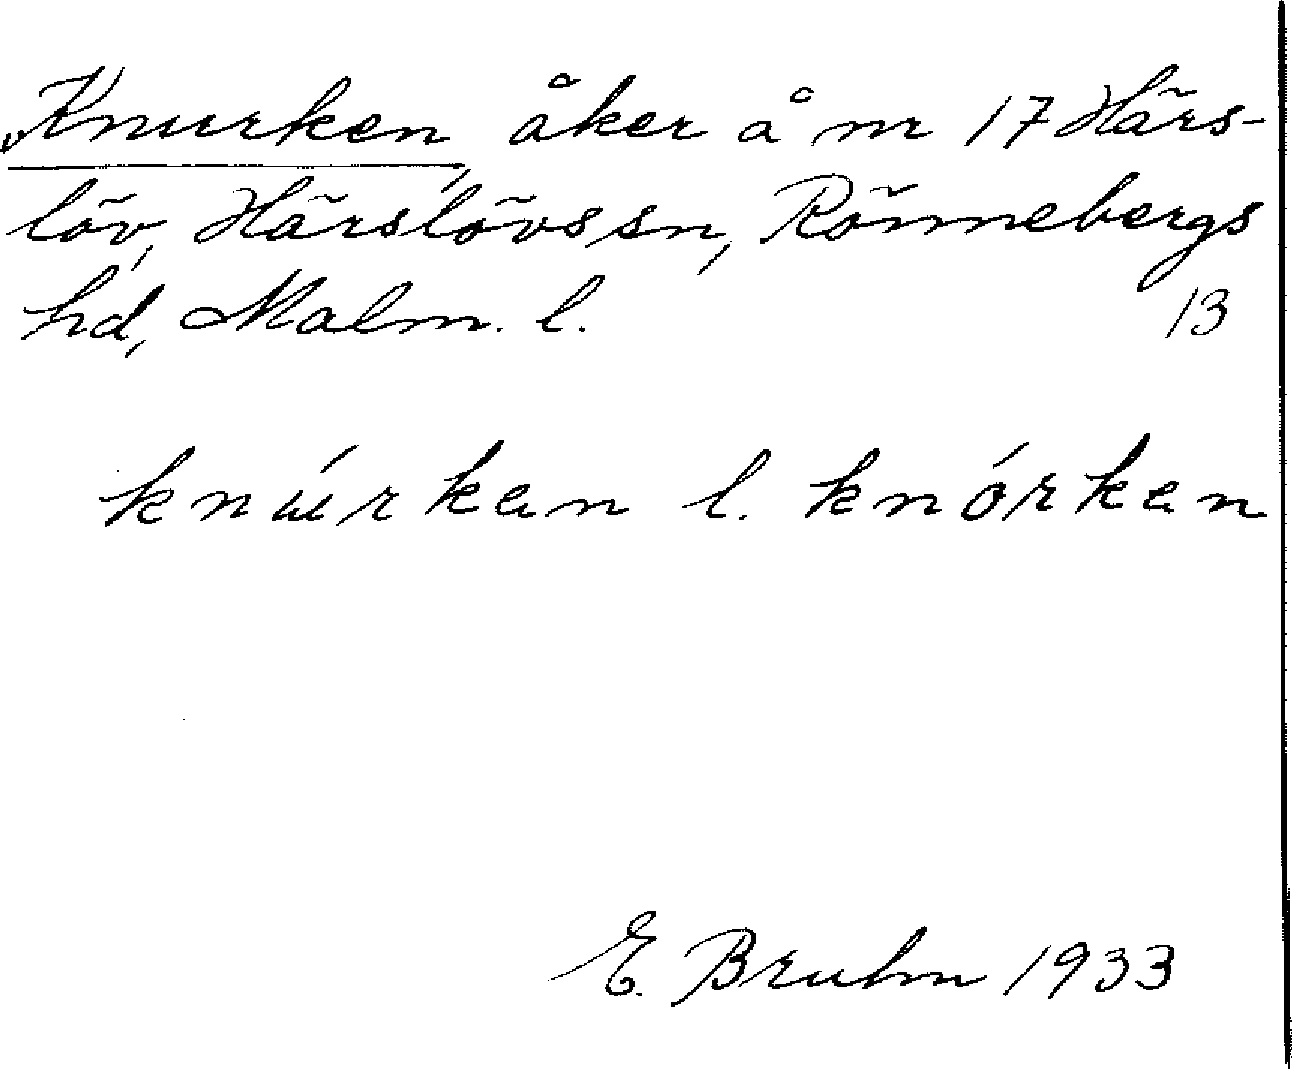 Knurken, åker å nr 17 Härs-
löv, Härslövs sn, Rönnebergs
hd, Malm. l. 13
knúrkən l. knórkən
E. Bruhn 1933